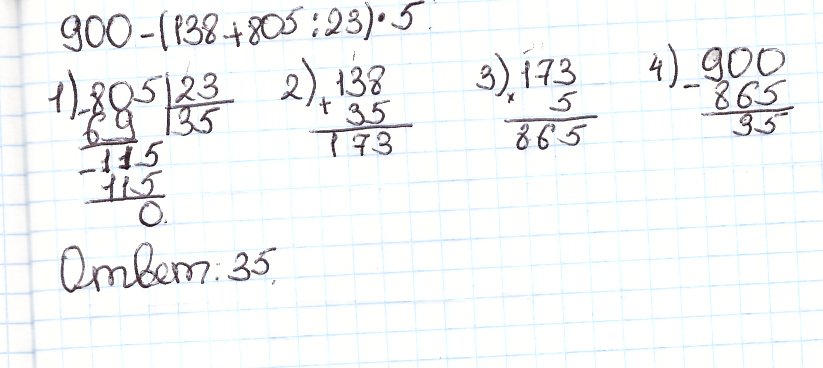 900-(138+805:23)•5.
1) -805 | 23
69 | 35
-115
115
0.
2) +138
35
173
3) ×173
5
865
4) -900
865
35
Ответ: 35.